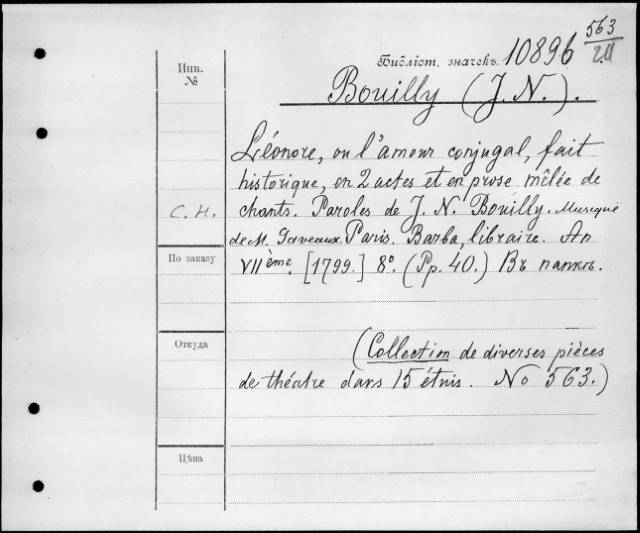 563
2д
Инв.
№
Библіот. значекъ. 10896
Bouilly (J. N.).
Léonore, ou l'amour conjugal, fait
historique, en 2 actes et en prose mêlée de
С. Н.
chants. Paroles de J. N. Bouilly. Musique
de M. Gaveaux. Paris. Barba, libraire. An
По заказу
VIIème. [1799.] 8º. (Pp. 40.) Въ папкѣ.
Откуда
(Collection de diverses pièces
de théatre dans 15 étuis. No 563.)
Цѣна